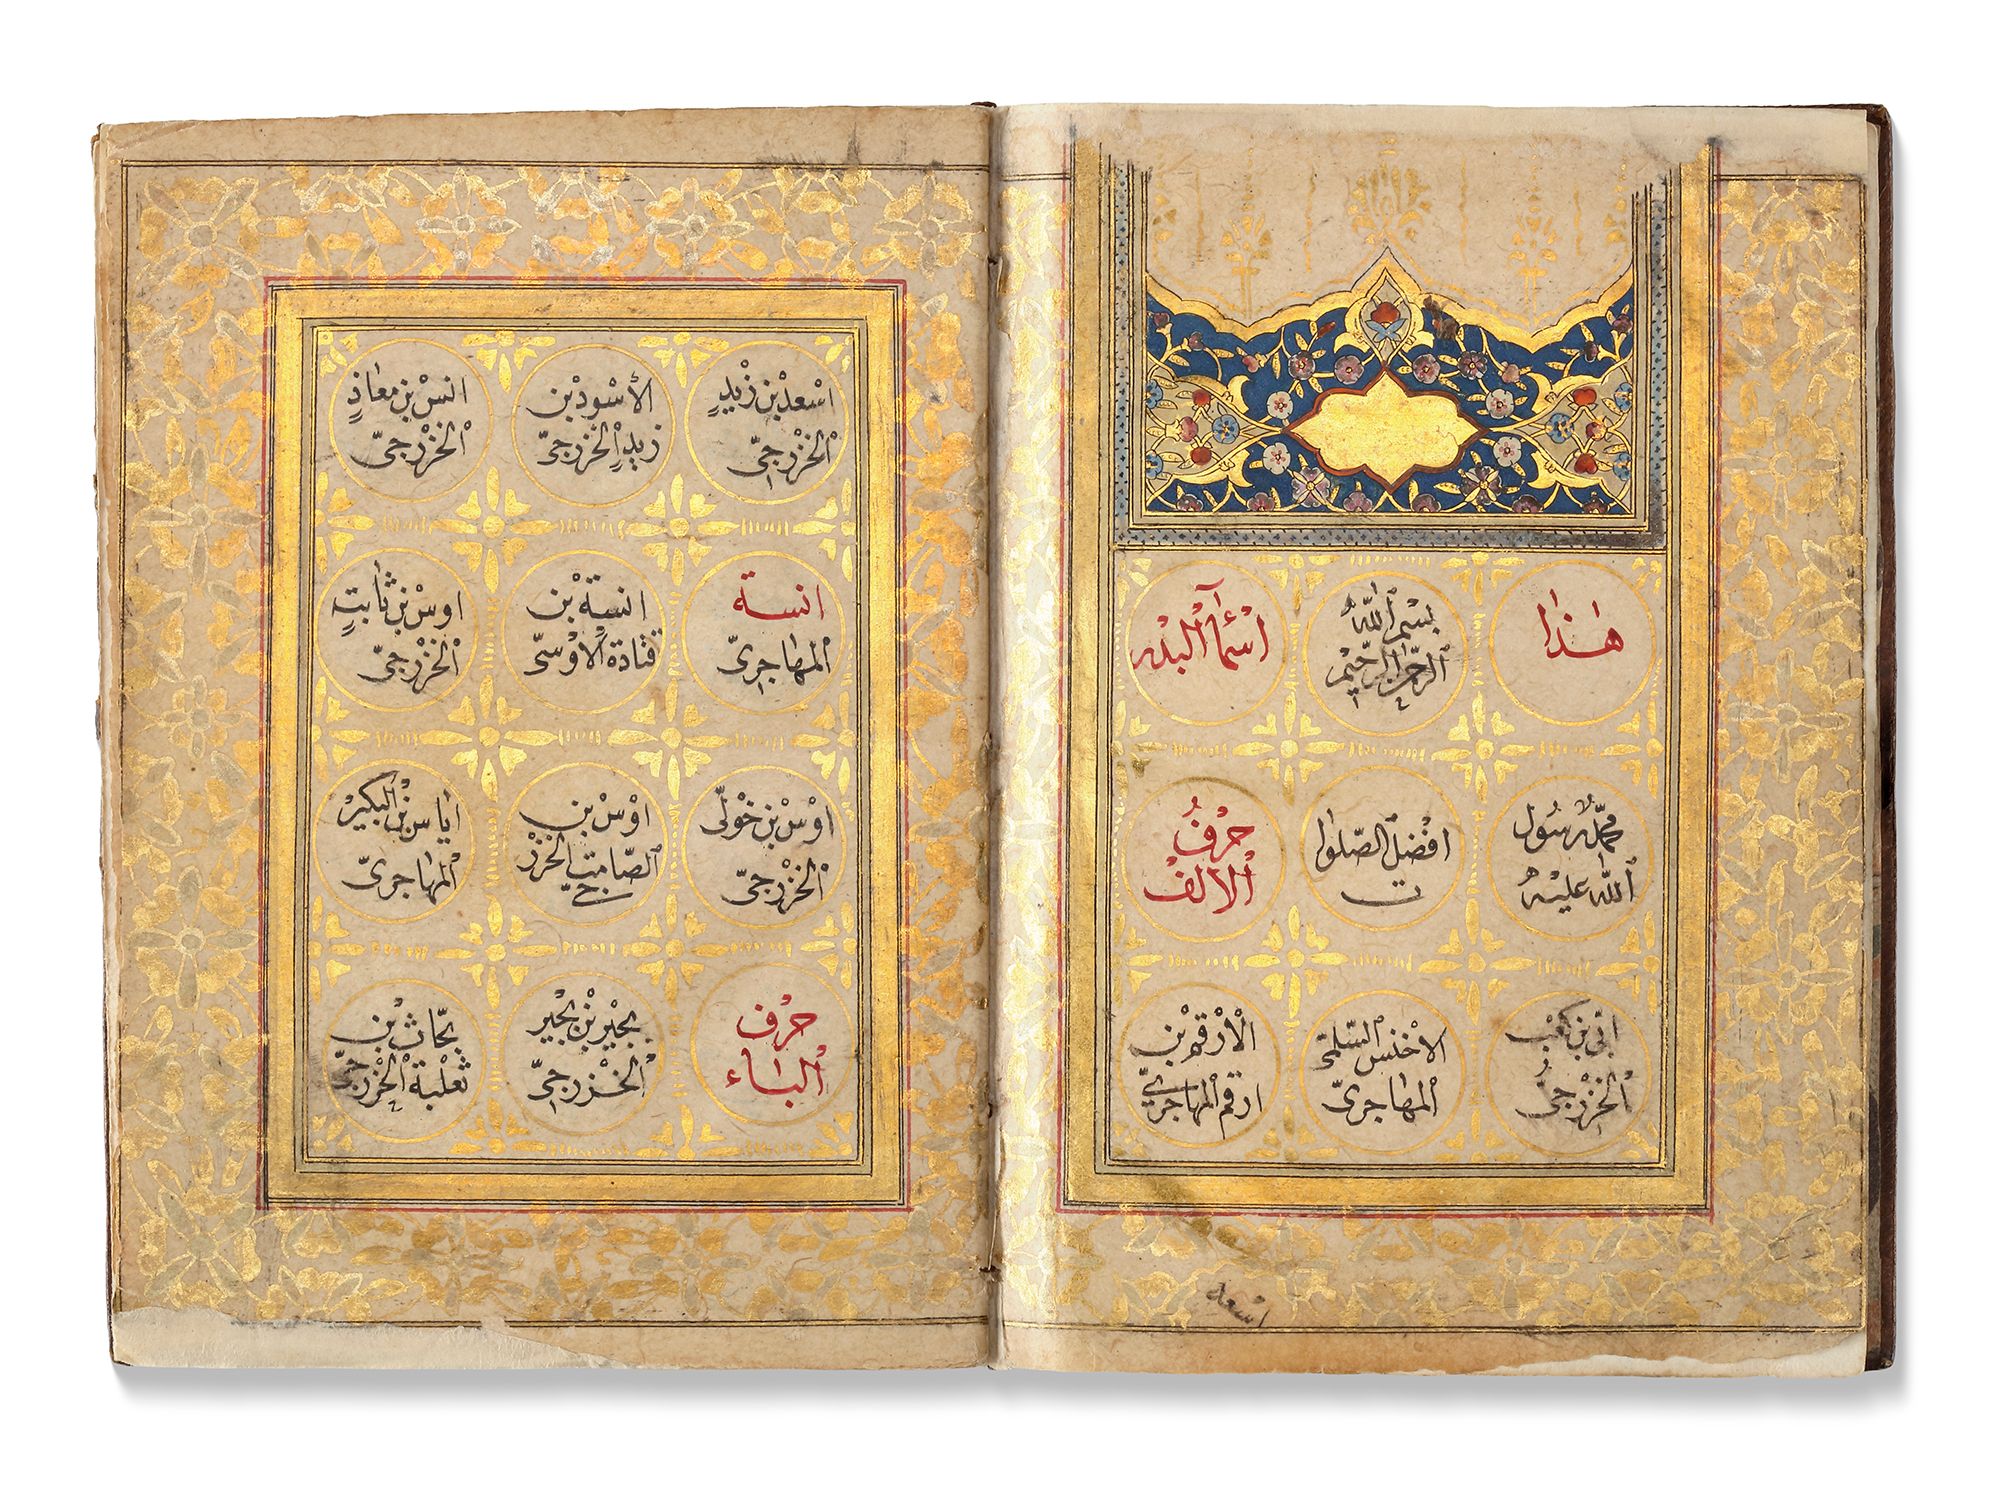 هٰذا
بسم الله
الرحمن الرحيم
اسمآء البدر
محمد رسول
الله عليه
افضل الصلوا
ت
حرف
الالف
ابى بن كعب
الخزرجىّ
الاخنس السلمى
المهاجرىّ
الارقم بن
ارقم المهاجرىّ
اسعد
اسعد بن زيدٍ
الخزرجىّ
الأسود بن
زيدٍ الخزرجىّ
انس بن معاذٍ
الخزرجىّ
انسة
المهاجرىّ
انسة بن
قتادة الأوسىّ
اوس بن ثابتٍ
الخزرجىّ
اوس بن خولىّ
الخزرجىّ
اوس بن
الصامت الخزر
جىّ
اياس بن البكير
المهاجرىّ
حرف
الباء
بجير بن بجير
الخزرجىّ
بحّاث بن
ثعلبة الخزرجىّ